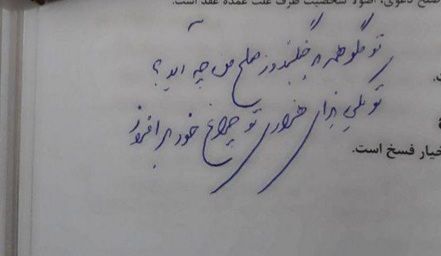 صلح دعوی، اصولا شخصیت طرف علت عمده عقد است.
تو مگو همه به جنگند و ز صلح من چه آید؟
تو یکی نه‌ای هزاری تو چراغ خود برافروز
خیار فسخ است.